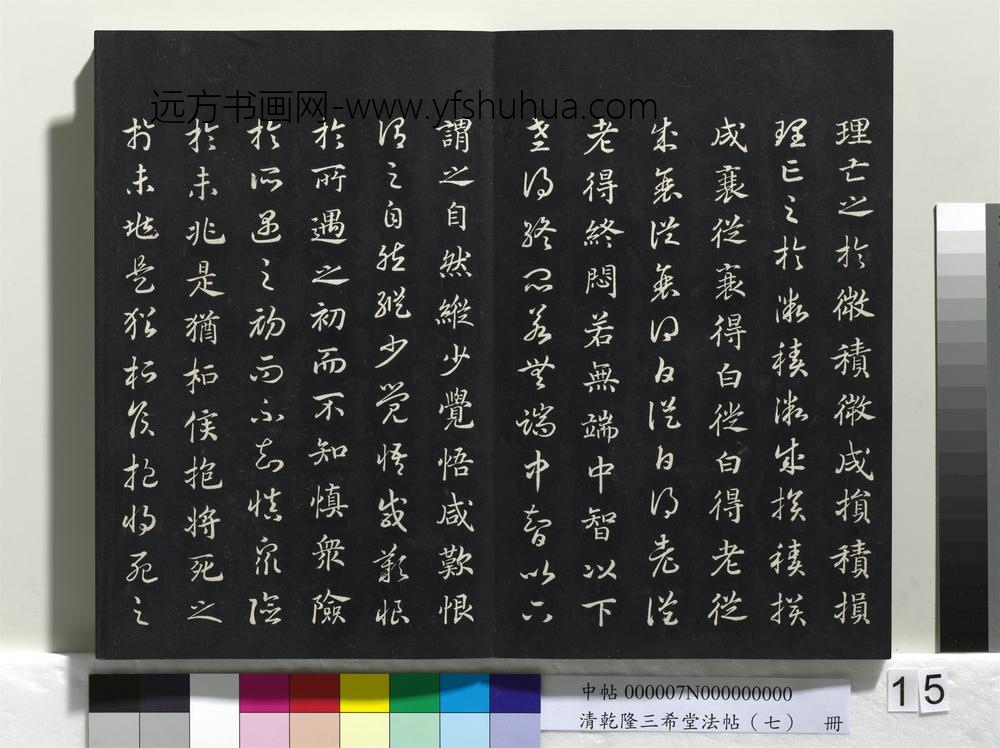 理亡之於微積微成損積損
理亡之於微積微成損積損
成衰從衰得白從白得老從
成衰從衰得白從白得老從
老得終悶若無端中智以下
老得終悶若無端中智以下
謂之自然縱少覺悟咸歎恨
謂之自然縱少覺悟咸歎恨
於所遇之初而不知慎衆險
於所遇之初而不知慎衆險
於未兆是猶桓侯抱將死之
於未兆是猶桓侯抱將死之
远方书画网-www.yfshuhua.com
中帖 000007N000000000
清乾隆三希堂法帖（七） 冊
15